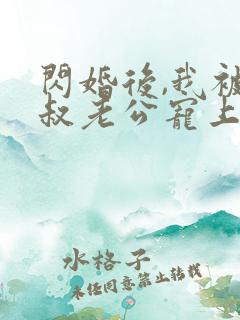 閃婚後,我被
叔老公寵上
水格子
未任同意禁止轉載